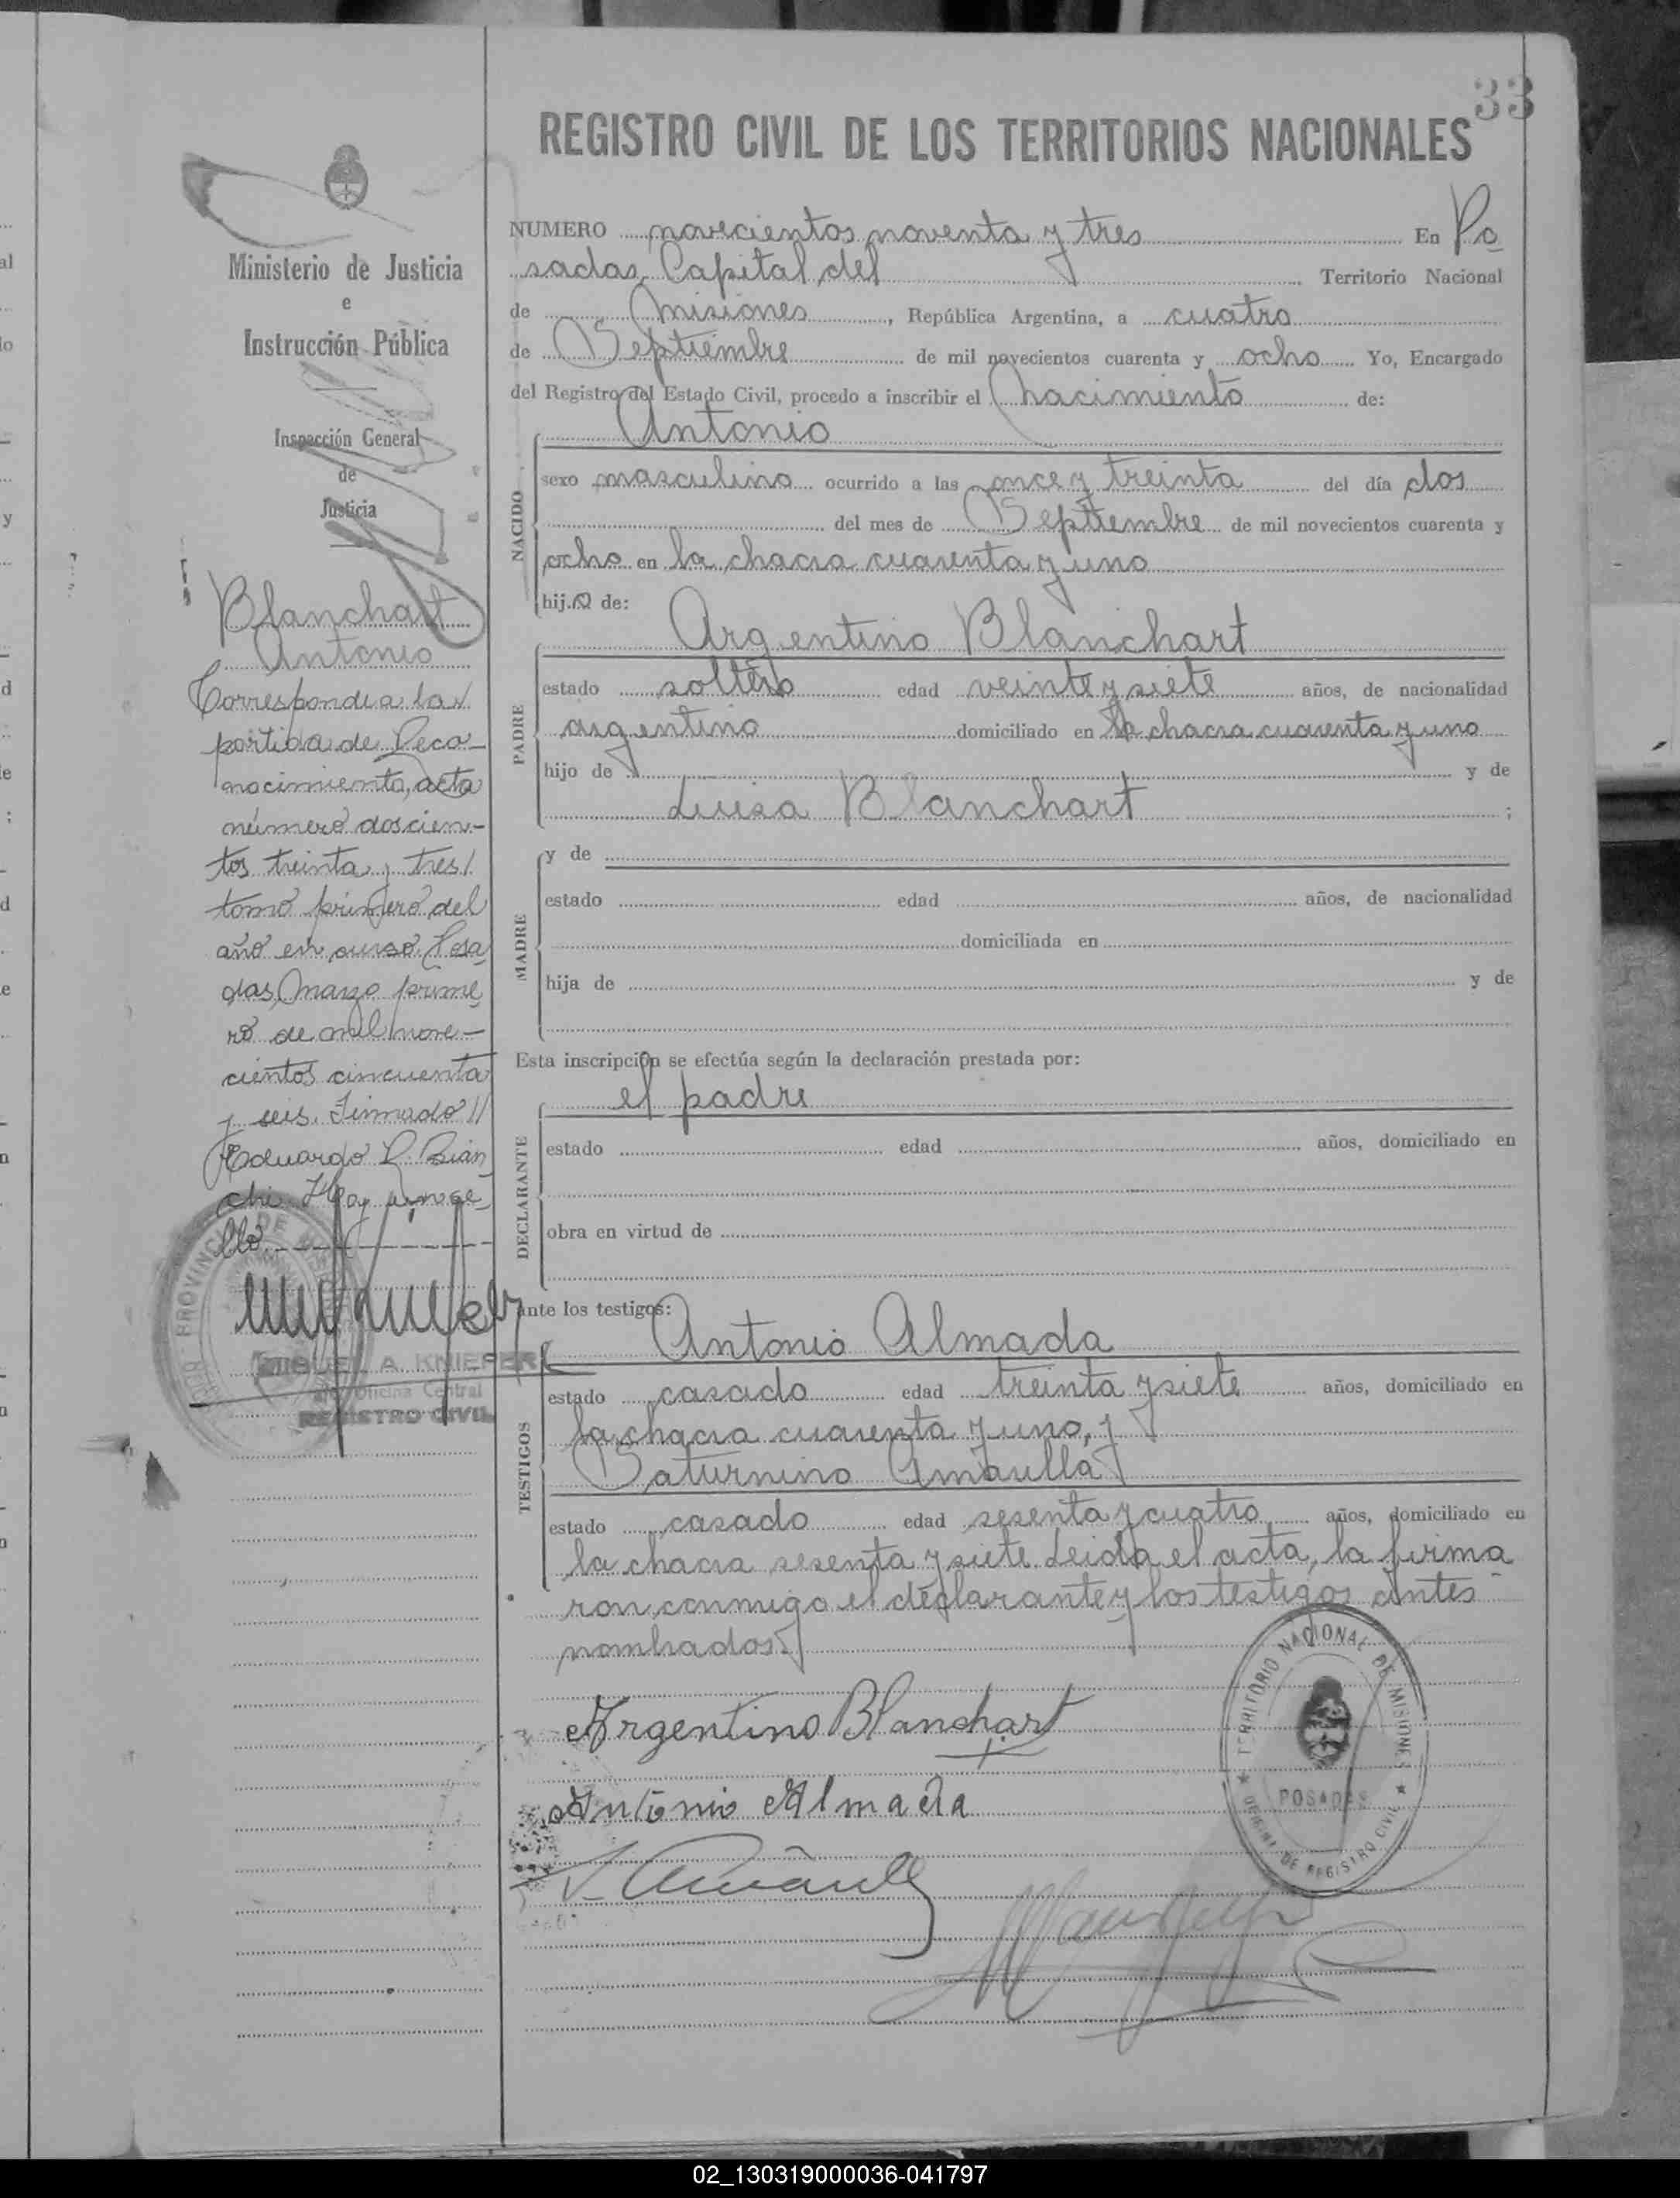 33
REGISTRO CIVIL DE LOS TERRITORIOS NACIONALES
NUMERO novecientos noventa y tres En Po
sadas, Capital del Territorio Nacional
de Misiones, República Argentina, a cuatro
de Septiembre de mil novecientos cuarenta y ocho Yo, Encargado
del Registro del Estado Civil, procedo a inscribir el nacimiento de:
Antonio
NACIDO
sexo masculino ocurrido a las once y treinta del día dos
del mes de Septiembre de mil novecientos cuarenta y
ocho en la chacra cuarenta y uno
hij.o de:
Argentino Blanchart
PADRE
estado soltero edad veinte y siete años, de nacionalidad
argentino domiciliado en la chacra cuarenta y uno
hijo de y de
Luisa Blanchart ;
y de
MADRE
estado edad años, de nacionalidad
domiciliada en
hija de y de
Esta inscripción se efectúa según la declaración prestada por:
el padre
DECLARANTE
estado edad años, domiciliado en
obra en virtud de
ante los testigos:
Antonio Almada
TESTIGOS
estado casado edad treinta y siete años, domiciliado en
la chacra cuarenta y uno, y
Saturnino
estado casado edad sesenta y cuatro años, domiciliado en
la chacra sesenta y siete. Leida el acta, la firma
ron conmigo el declarante y los testigos antes
nombrados.
Argentino Blanchart
Antonio Almada
TERRITORIO NACIONAL DE MISIONES
POSADAS
OFICINA DE REGISTRO CIVIL
Ministerio de Justicia
e
Instrucción Pública
Inspección General
de
Justicia
Blanchart
Antonio
Corresponde a la
partida de Reco-
nocimiento, acta
número doscien-
tos treinta y tres
tomo primero del
año en curso. Posa
das, Marzo prime
ro de mil nove-
cientos cincuenta
y seis. Firmado
Eduardo L. Bian
chi. Hay un se
llo.
PROVINCIA DE MISIONES
MIGUEL A. KNIEPER
Oficina Central
REGISTRO CIVIL
02_130319000036-041797